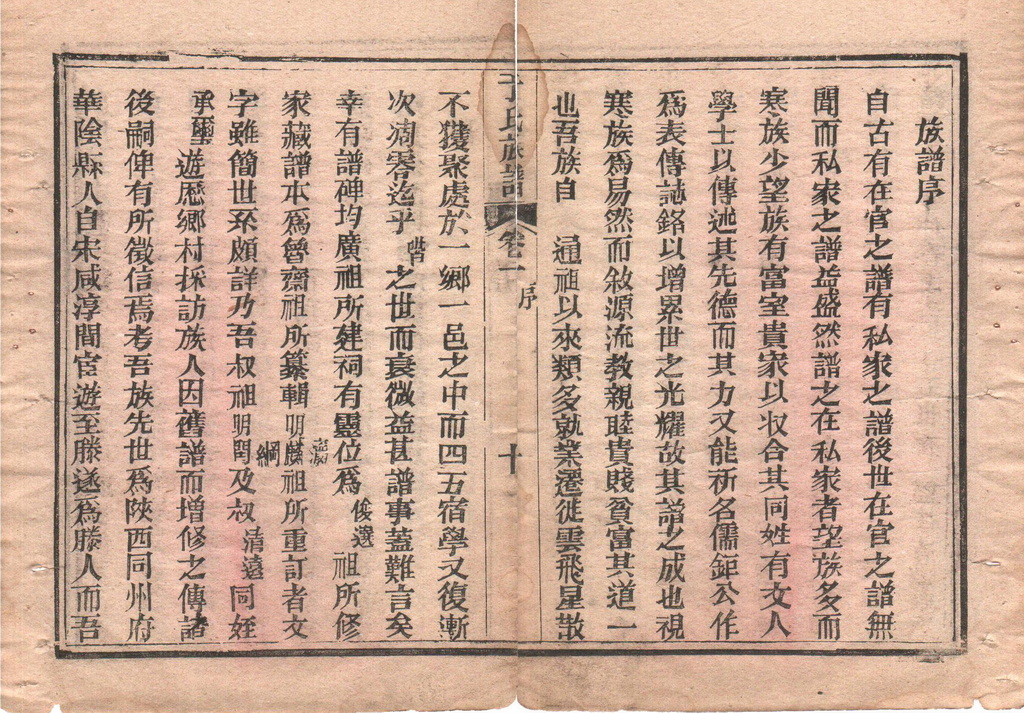 族譜序
自古有在官之譜有私家之譜後世在官之譜無
聞而私家之譜益盛然譜之在私家者望族多而
寒族少望族有富室貴家以収合其同姓有文人
學士以傳述其先德而其力又能祈名儒鉅公作
為表傳誌銘以增累世之光耀故其譜之成也視
寒族為易然而敘源流教親睦貴賤貧富其道一
也吾族自 通祖以來類多就業遷徙雲飛星散
于氏族譜 卷一 序 十
不獲聚處於一鄉一邑之中而四五宿學又復漸
次凋零迄乎 之世而衰微益甚譜事蓋難言矣
幸有譜碑均廣祖所建祠有靈位為 俊選 祖所修
家藏譜本為魯齋祖所纂輯明 麟祖所重訂者文
字雖簡世系頗詳乃吾叔祖明閏及叔 清遠 同姪
承璽 遊歷鄉村採訪族人因舊譜而增修之傳諸
後嗣俾有所徵信焉考吾族先世為陝西同州府
華陰縣人自宋咸淳間宦遊至滕遂為滕人而吾